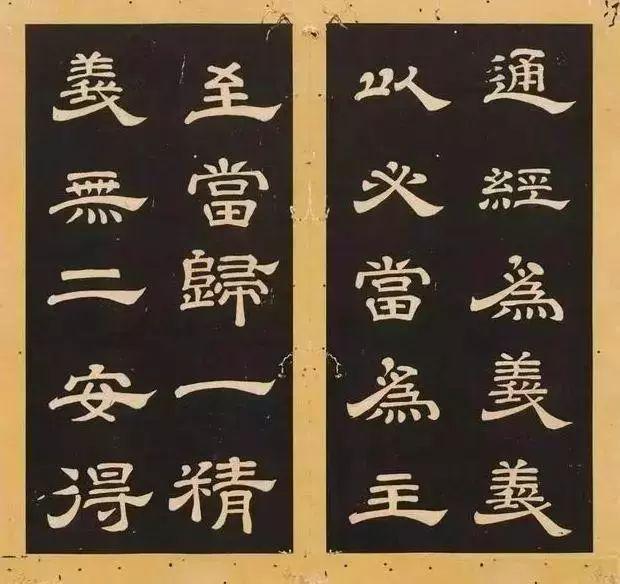 通經為義義
以必當為主
至當歸一精
義無二安得